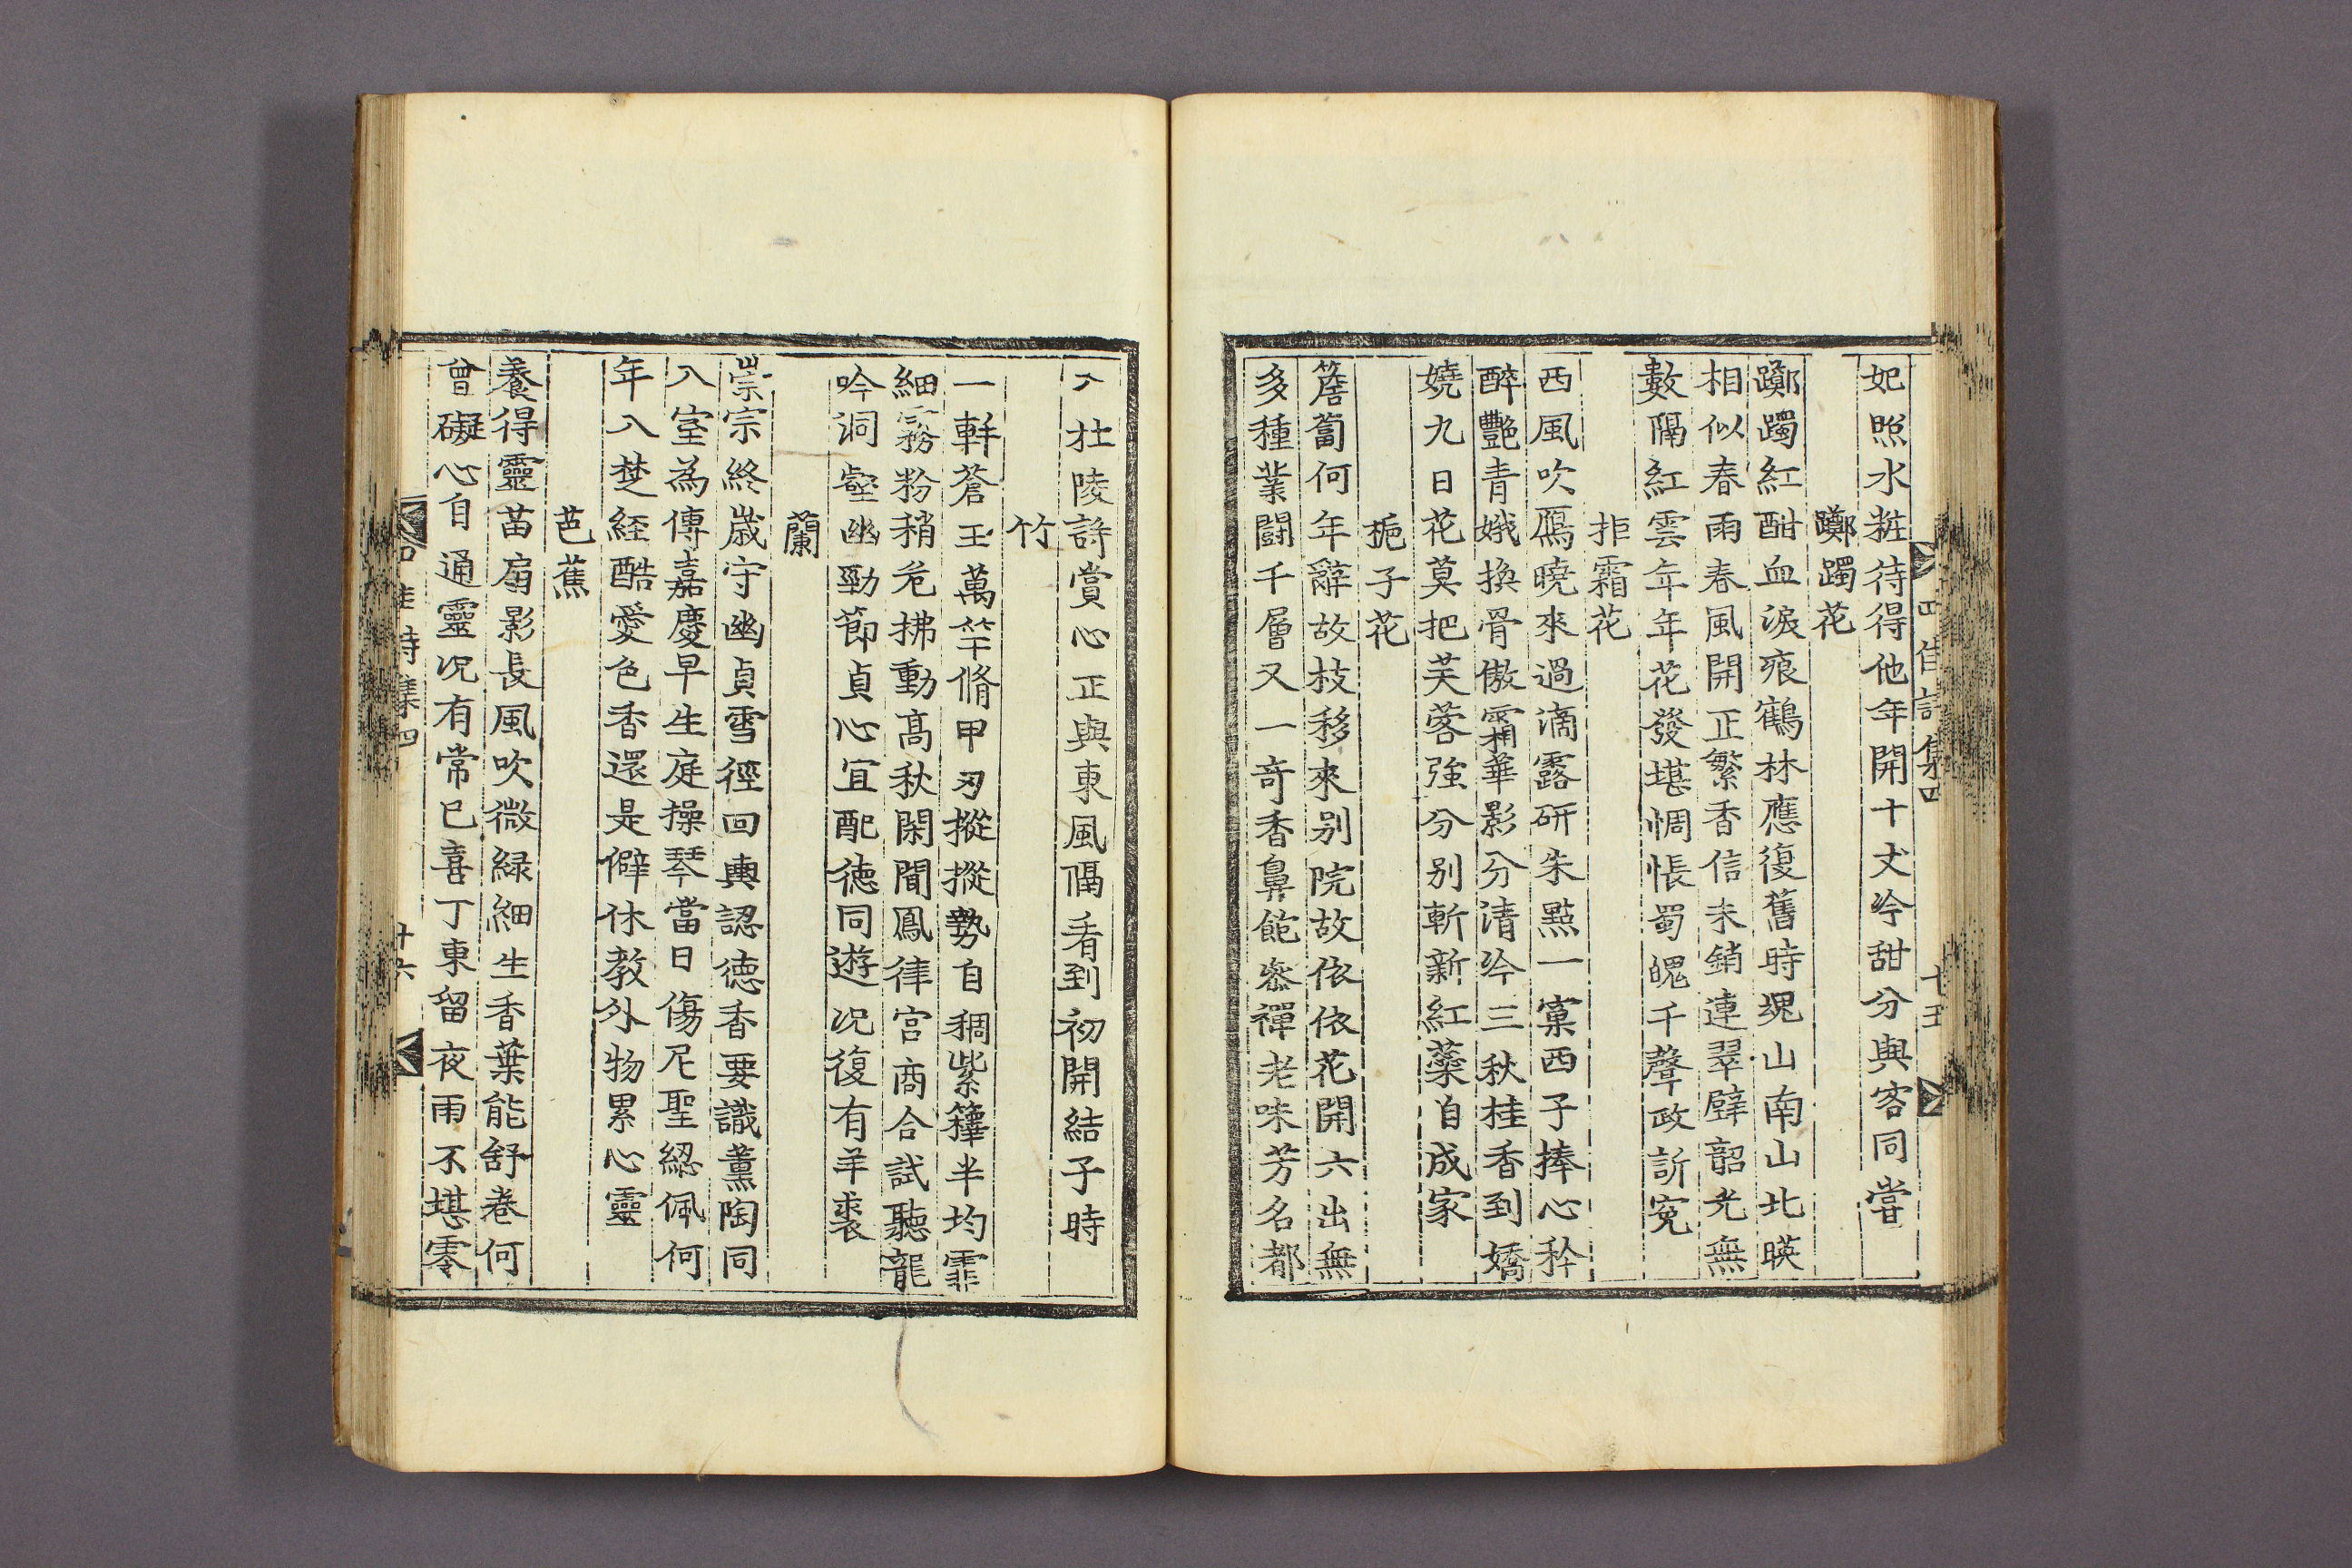 四佳詩集四
十五
妃照水粧待得他年開十丈吟甜分與客同嘗
躑躅花
躑躅紅酣血淚痕鶴林應復舊時魂山南山北暎
相似春雨春風開正繁香信未銷連翠壁韶光無
數隔紅雲年年花發堪惆悵蜀魄千聲政訴寃
拒霜花
西風吹鴈曉來過滴露硏朱㸃一窠西子捧心矜
醉艷靑娥換骨傲霜華影分淸吟三秋桂香到嬌
嬈九日花莫把芙蓉強分別斬新紅蘂自成家
梔子花
簷蔔何年辭故枝移來別院故依依花開六出無
多種葉鬪千層又一奇香鼻飽叅禪老味芳名都
入杜陵詩賞心正與東風隔看到初開結子時
竹
一軒蒼玉萬竿脩甲刃摐摐勢自稠紫籜半均霏
細霧粉稍危拂動高秋閑聞鳳律宮商合試聽龍
吟洞壑幽勁節貞心宜配德同遊况復有羊裘
蘭
崇宗終歲守幽貞雪徑回輿認德香要識薰陶同
入室爲傳嘉慶早生庭操琴當日傷尼聖緫佩何
年入楚經酷愛色香還是僻休教外物累心靈
芭蕉
養得靈苗扇影長風吹微綠細生香葉能舒卷何
曾礙心自通靈况有常已喜丁東留夜雨不堪零
四佳詩集四
十六